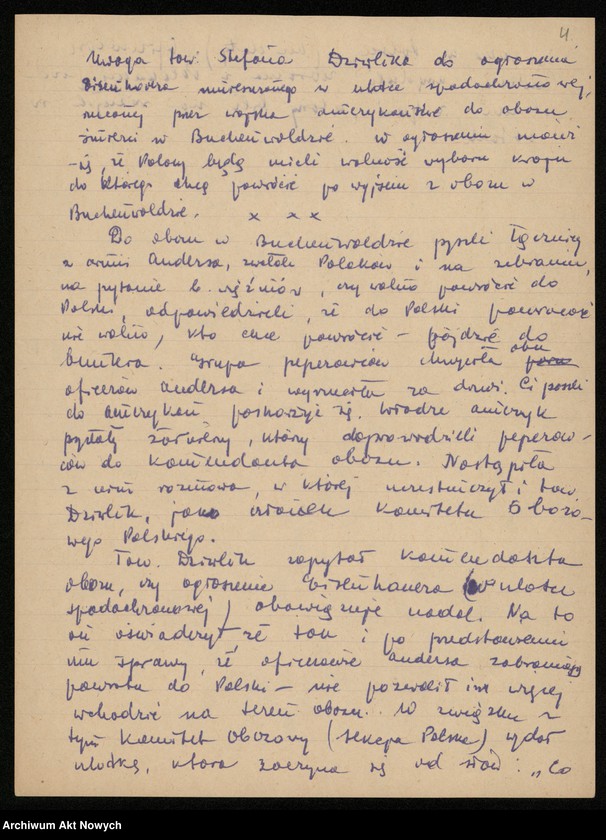 4.
Uwaga tow. Stefana Dziwlika do ogłoszenia
Eisenhowera umieszczonego w ulotce spadochronowej,
rzuconej przez wojska amerykańskie do obozu
śmierci w Buchenwaldzie. W ogłoszeniu mówi
się, że Polacy będą mieli wolność wyboru kraju
do którego chcą powrócić po wyjściu z obozu w
Buchenwaldzie. x x x
Do obozu w Buchenwaldzie przyszli łącznicy
z armii Andersa, zwołali Polaków i na zebraniu,
na pytanie b. więźniów, czy wolno powrócić do
Polski, odpowiedzieli, że do Polski powracać
nie wolno, kto chce powrócić – pójdzie do
bunkra. Grupa peperowców chwyciła obu
oficerów Andersa i wyrzuciła za drzwi. Ci poszli
do Amerykan poskarżyć się. Władze ameryk
przysłały żołnierzy, którzy doprowadzili peperow-
ców do komendanta obozu. Nastąpiła
z nimi rozmowa, w której uczestniczył i tow.
Dziwlik, jako członek Komitetu Obozo-
wego Polskiego.
Tow. Dziwlik zapytał komendanta
obozu, czy ogłoszenie Eisenhauera (w ulotce
spadochronowej) obowiązuje nadal. Na to
on oświadczył, że tak i po przedstawieniu
mu sprawy, że oficerowie Andersa zabraniają
powrotu do Polski – nie pozwolił im więcej
wchodzić na teren obozu. W związku z
tym Komitet Obozowy (sekcja Polska) wydał
ulotkę, która zaczyna się od słów: „Co
Archiwum Akt Nowych